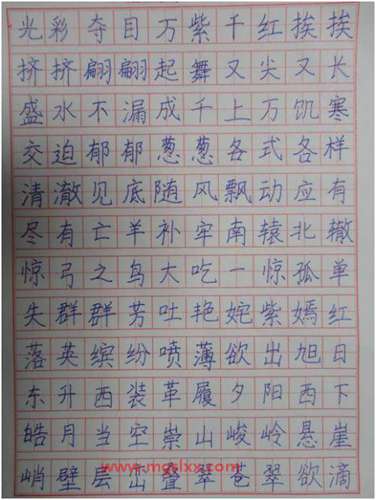 光彩夺目万紫千红挨挨
挤挤翩翩起舞又尖又长
盛水不漏成千上万饥寒
交迫郁郁葱葱各式各样
清澈见底随风飘动应有
尽有亡羊补牢南辕北辙
惊弓之鸟大吃一惊孤单
失群群芳吐艳姹紫嫣红
落英缤纷喷薄欲出旭日
东升西装革履夕阳西下
皓月当空崇山峻岭悬崖
峭壁层出叠翠苍翠欲滴